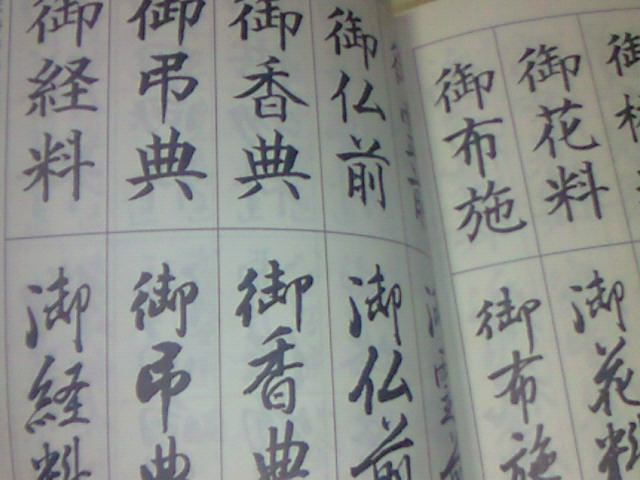 御仏前
御香典
御弔典
御経料
御仏前
御香典
御弔典
御経料
御花料
御布施
御花料
御布施